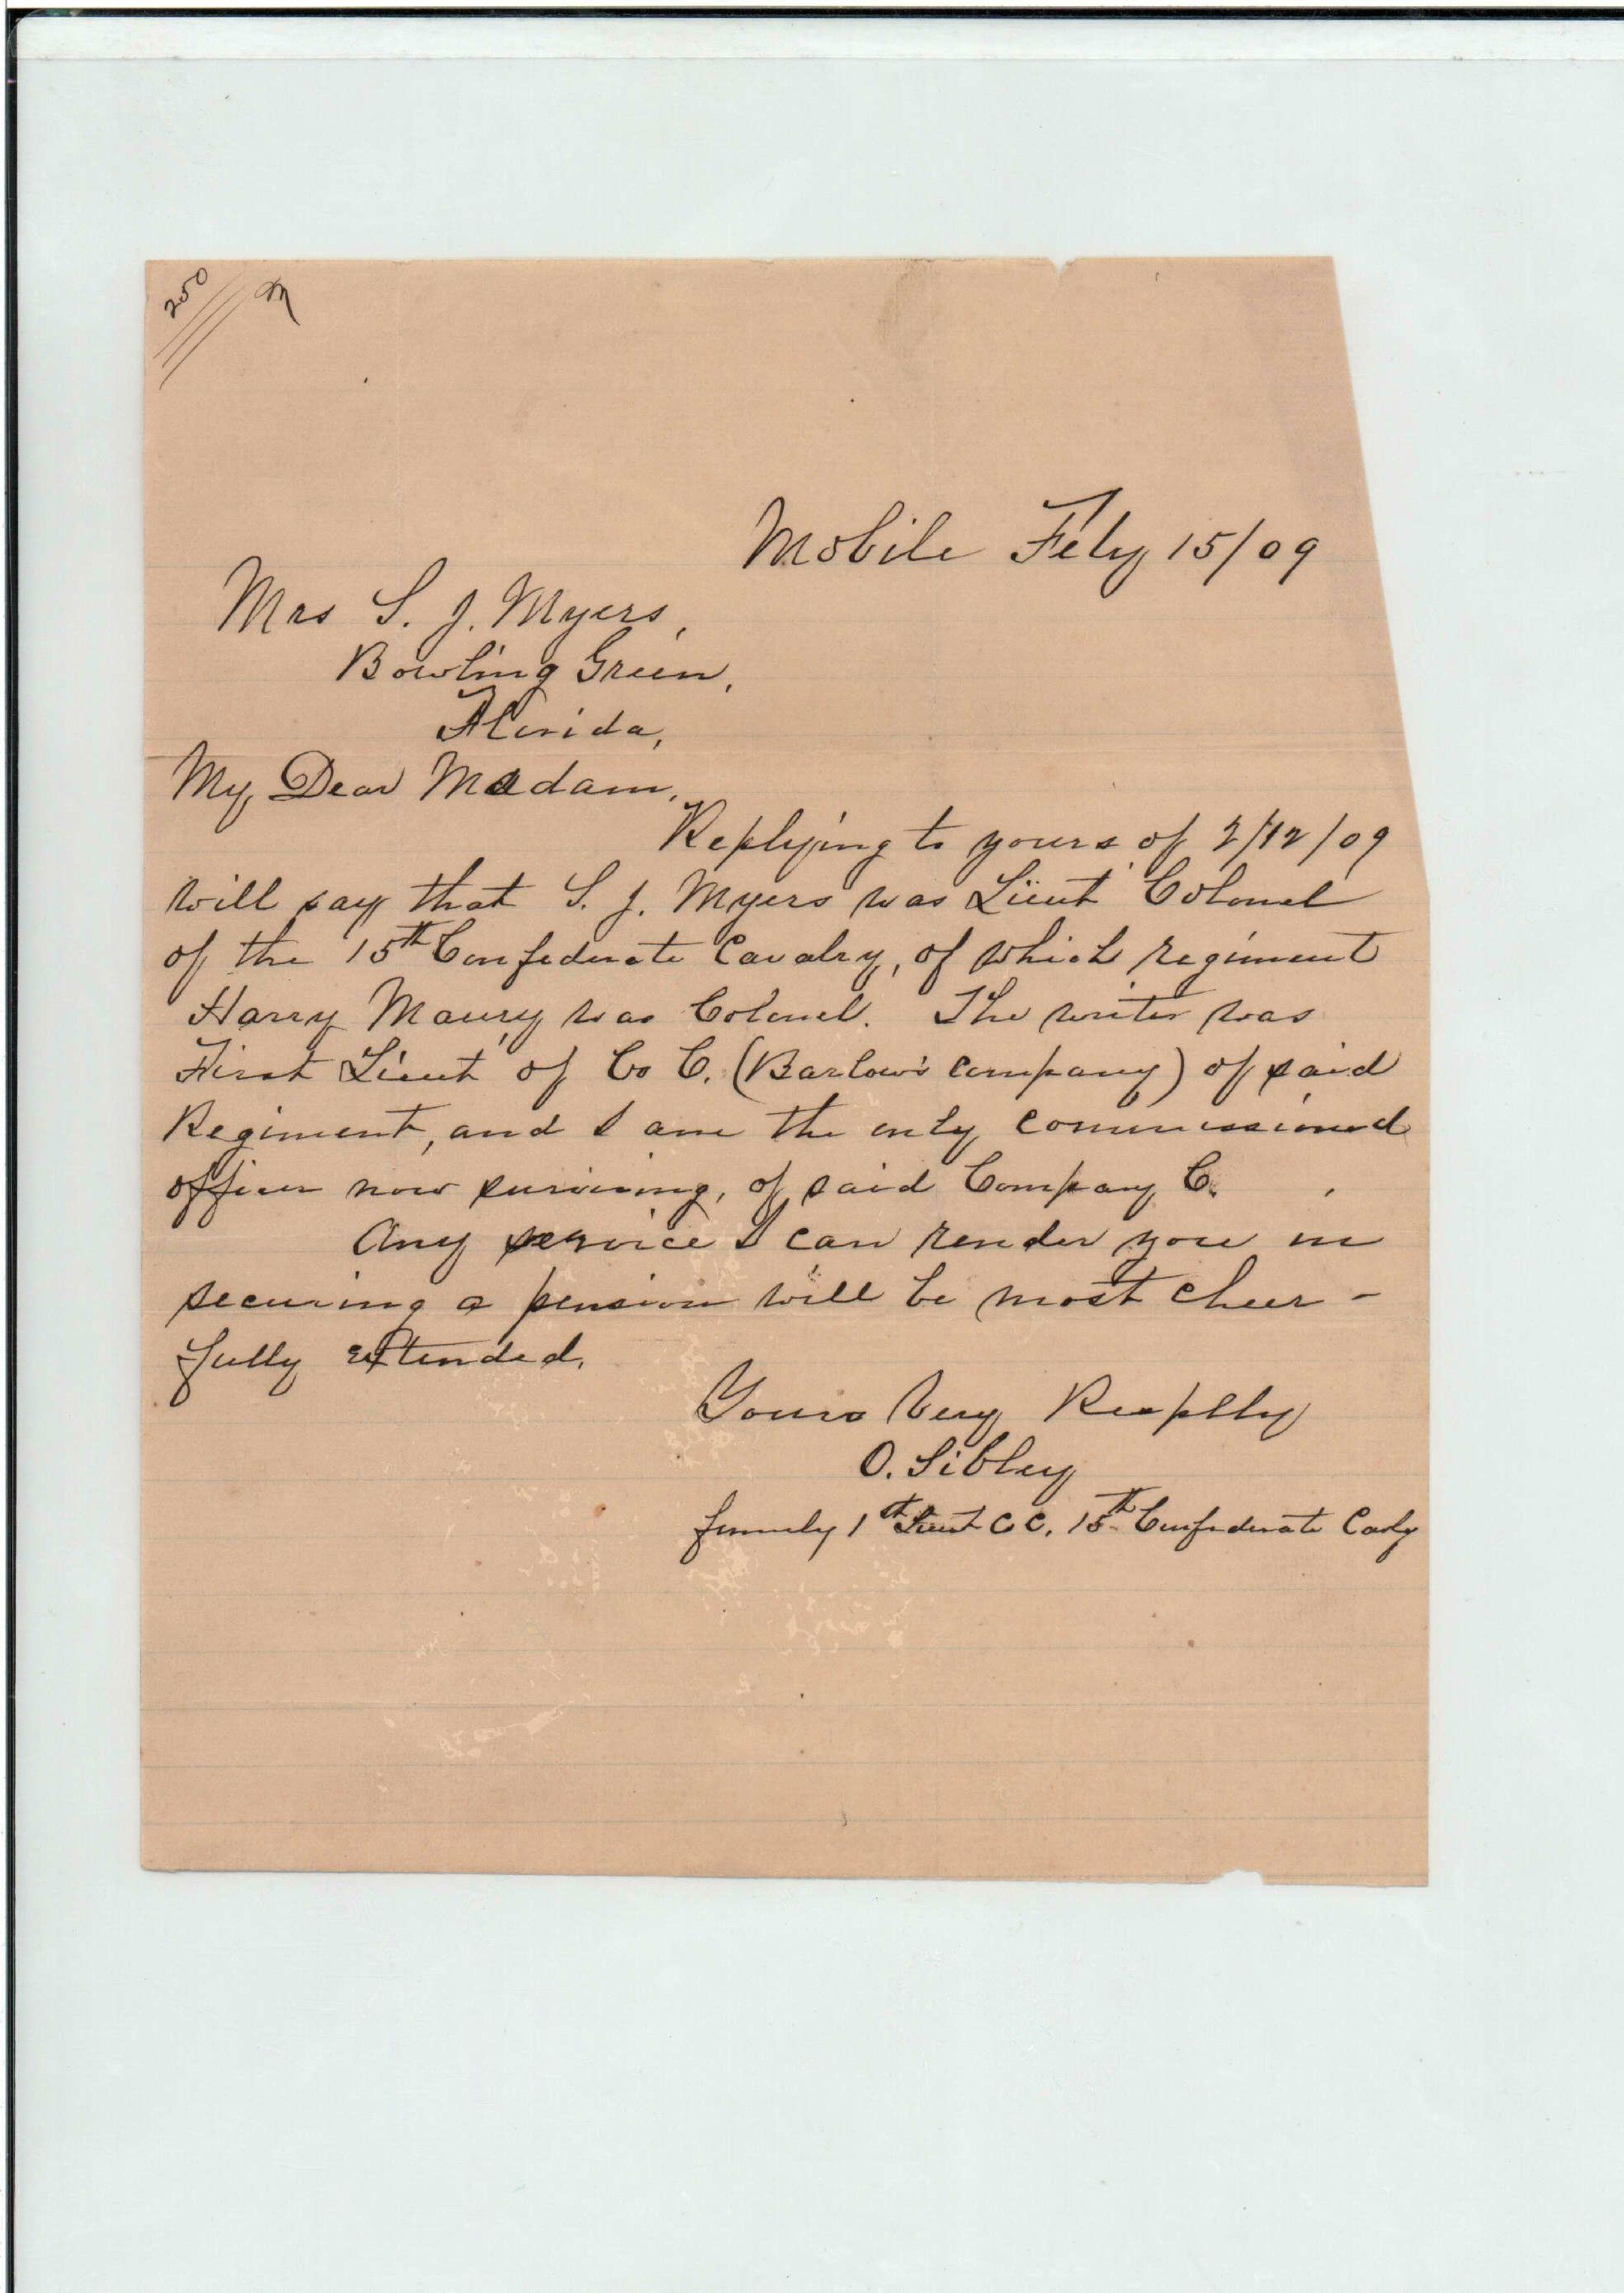 250
Mobile Feby 15/09
Mrs S. J. Myers,
Bowling Green,
Florida,
My Dear Madam,
Replying to yours of 2/12/09
will say that S. J. Myers was Lieut Colonel
of the 15th Confederate Cavalry, of which regiment
Harry Maury was Colonel. The writer was
First Lieut of Co C. (Barlow's company) of said
Regiment, and I am the only commissioned
officer now surviving, of said Company C.
Any service I can render you in
securing a pension will be most cheer-
fully extended.
Yours Very Resptlly
O. Sibley
formerly 1st Lieut C C, 15th Confederate Cavly